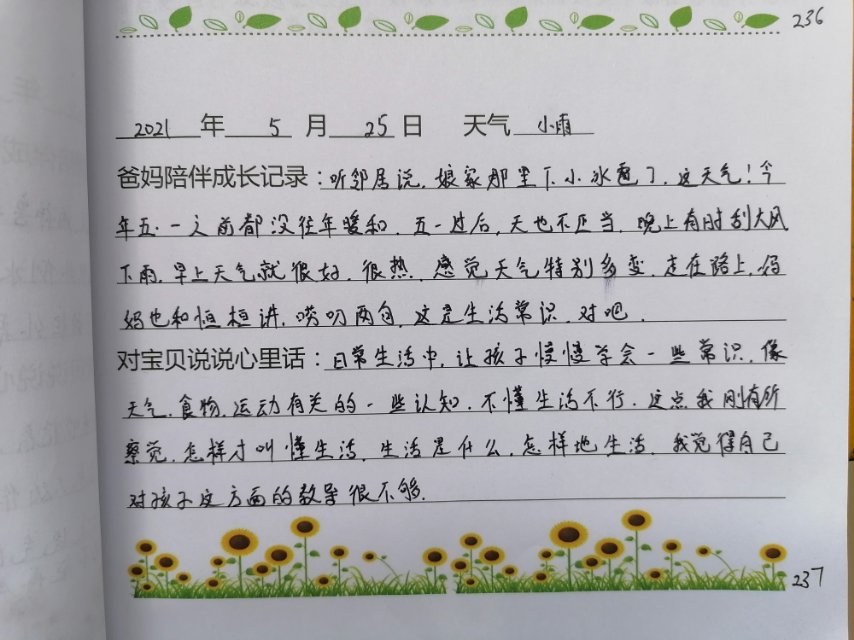 236
2021 年 5 月 25 日 天气 小雨
爸妈陪伴成长记录：听邻居说，娘家那里下小冰雹了，这天气！今
年五·一之前都没往年暖和，五一过后，天也不正当，晚上有时刮大风
下雨，早上天气就很好，很热，感觉天气特别多变，走在路上，妈
妈也和恒桓讲，唠叨两句，这是生活常识，对吧。
对宝贝说说心里话：日常生活中，让孩子慢慢学会一些常识，像
天气，食物，运动有关的一些认知，不懂生活不行，这点我刚有所
察觉，怎样才叫懂生活，生活是什么，怎样地生活，我觉得自己
对孩子这方面的教导很不够。
237